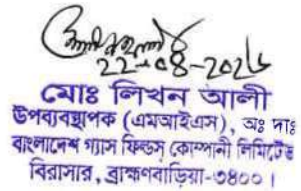 22-08-2026
মোঃ লিখন আলী
উপব্যবস্থাপক (এমআইএস), অঃ দাঃ
বাংলাদেশ গ্যাস ফিল্ডস্ কোম্পানী লিমিটেড
বিরাসার, ব্রাহ্মণবাড়িয়া-৩৪০০।